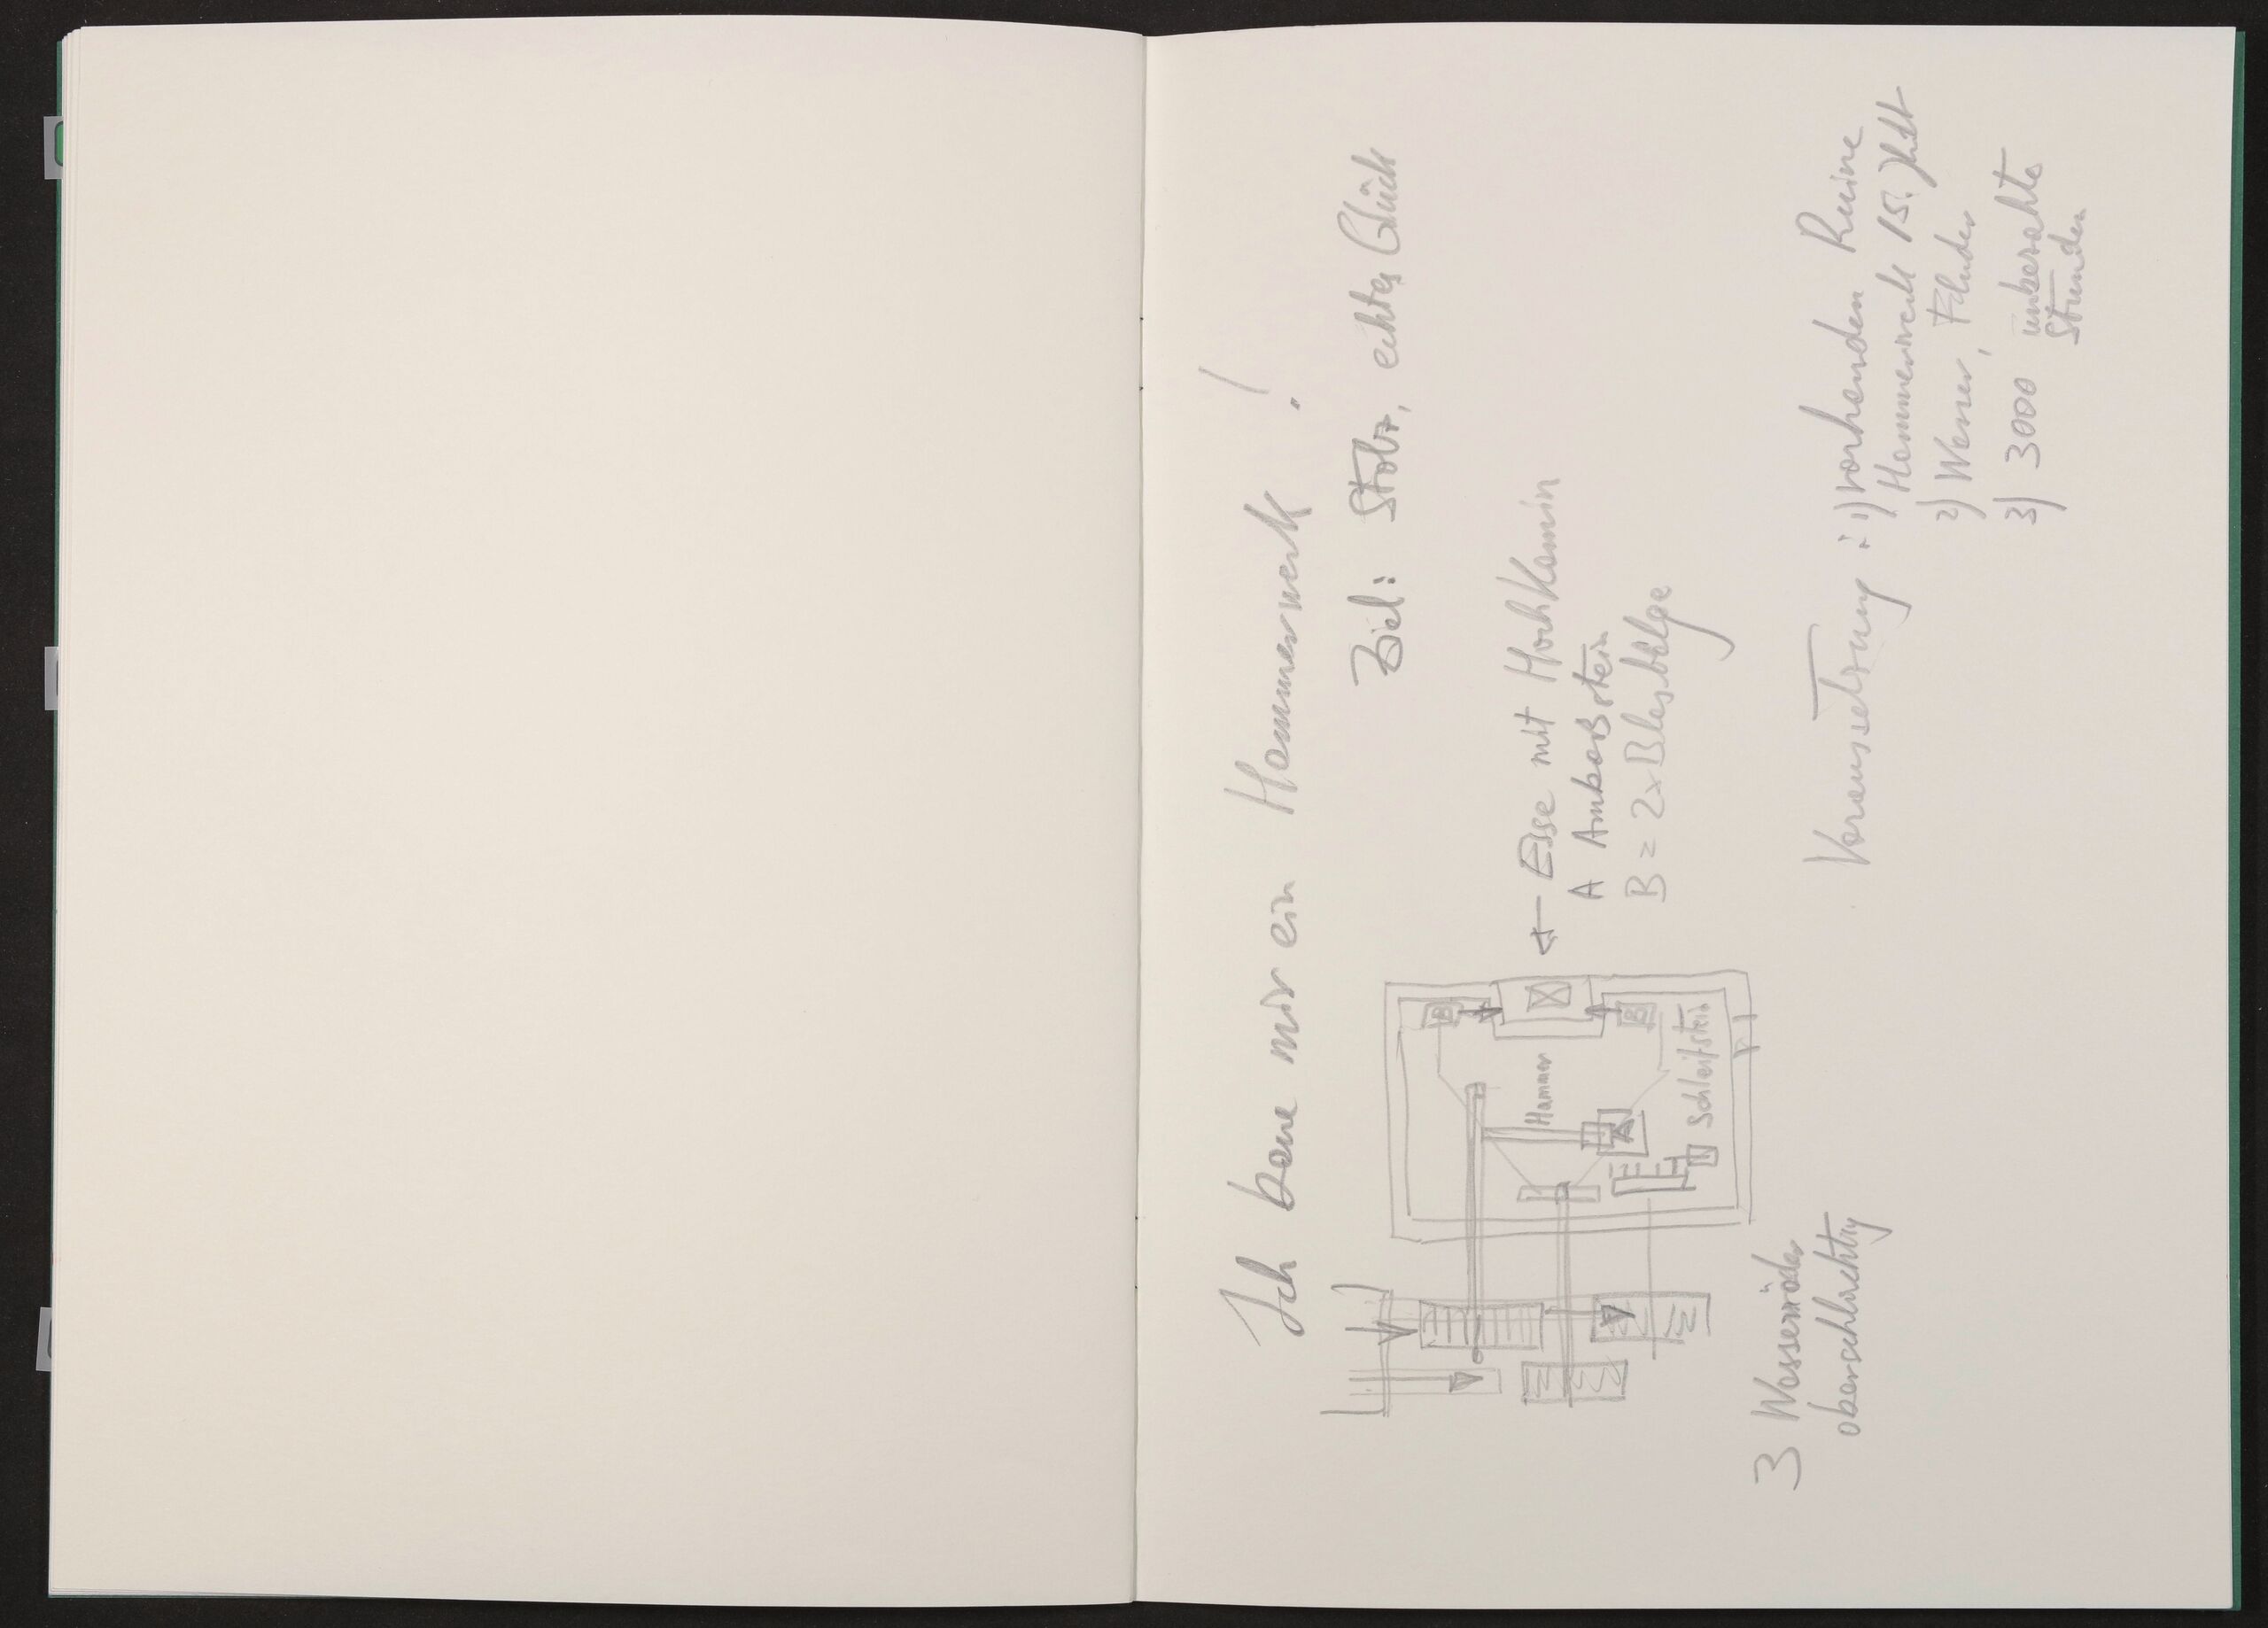 Ich baue mir ein Hammerwerk !
Ziel: Stolz, echtes Glück
← Esse mit Hochkamin
A Amboßstein
B = 2x Blasbälge
B
B
Hammer
A
Schleifstein
3 Wasserräder
oberschlächtig
Voraussetzung : 1) vorhanden Ruine
Hammerwerk 15. Jhdt
2) Wasser, Fluder
3) 3000 unbezahlte
Stunden